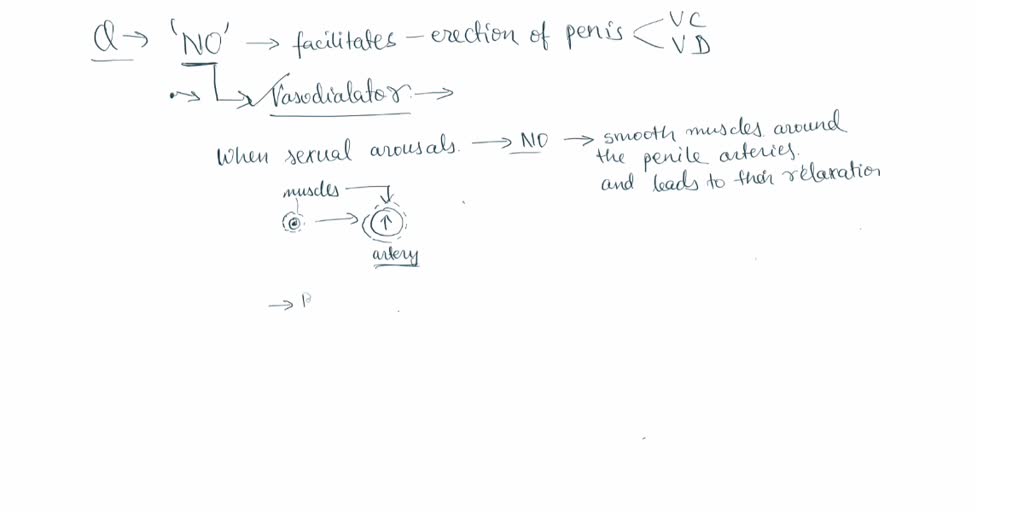 Q → 'NO' → facilitates - erection of penis < VC
VD
→ Vasodialator →
When sexual arousals. → NO → smooth muscles around
the penile arteries.
and leads to their relaxation
muscles
artery
→